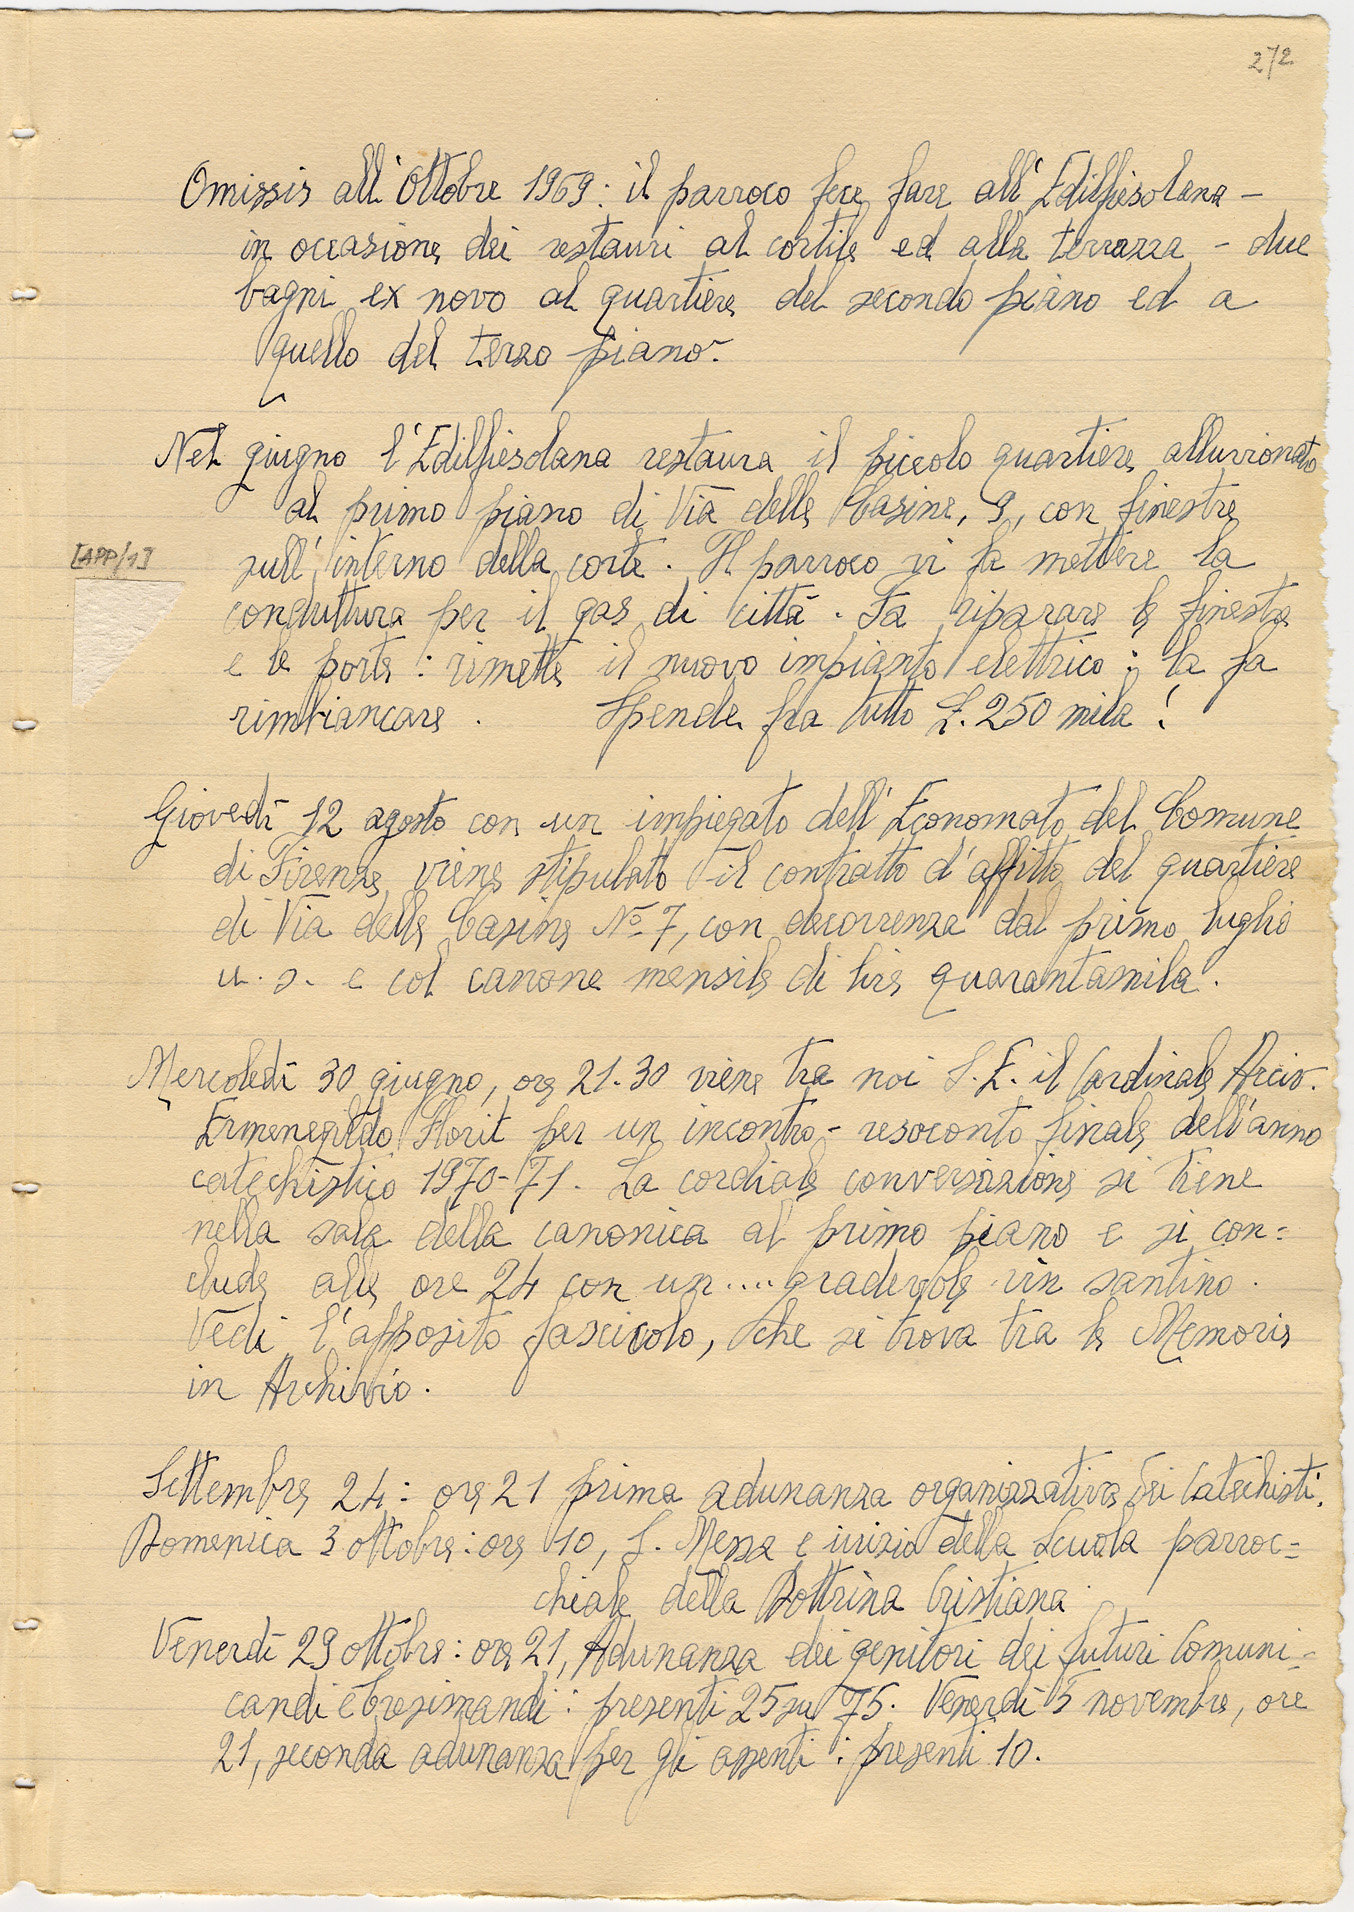 272
Omissis all'Ottobre 1969: il parroco fece fare all'Edilfiesolana –
in occasione dei restauri al cortile ed alla terrazza – due
bagni ex novo al quartiere del secondo piano ed a
quello del terzo piano.
Nel giugno l'Edilfiesolana restaura il piccolo quartiere alluvionato
al primo piano di Via delle Casine, 9, con finestre
sull'interno della corte. Il parroco vi fa mettere la
conduttura per il gas di città. Fa riparare le finestre
[APP/1]
e le porte: rimette il nuovo impianto elettrico; la fa
rimbiancare. Spende fra tutto £. 250 mila!
Giovedì 12 agosto con un impiegato dell'Economato del Comune
di Firenze viene stipulato il contratto d'affitto del quartiere
di Via delle Casine Nº 7, con decorrenza dal primo luglio
u. s. e col canone mensile di lire quarantamila.
Mercoledì 30 giugno, ore 21.30 viene tra noi S. E. il Cardinale Arciv.
Ermenegildo Florit per un incontro – resoconto finale dell'anno
catechistico 1970-71. La cordiale conversazione si tiene
nella sala della canonica al primo piano e si con=
clude alle ore 24 con un .... gradevole vin santino.
Vedi l'apposito fascicolo, che si trova tra le Memorie
in Archivio.
Settembre 24: ore 21 prima adunanza organizzativa dei Catechisti.
Domenica 3 ottobre: ore 10, S. Messa e inizio della Scuola parroc=
chiale della Dottrina Cristiana.
Venerdì 29 ottobre: ore 21, Adunanza dei genitori dei futuri Comuni=
candi e Cresimandi: presenti 25 su 75. Venerdì 5 novembre, ore
21, seconda adunanza per gli assenti: presenti 10.